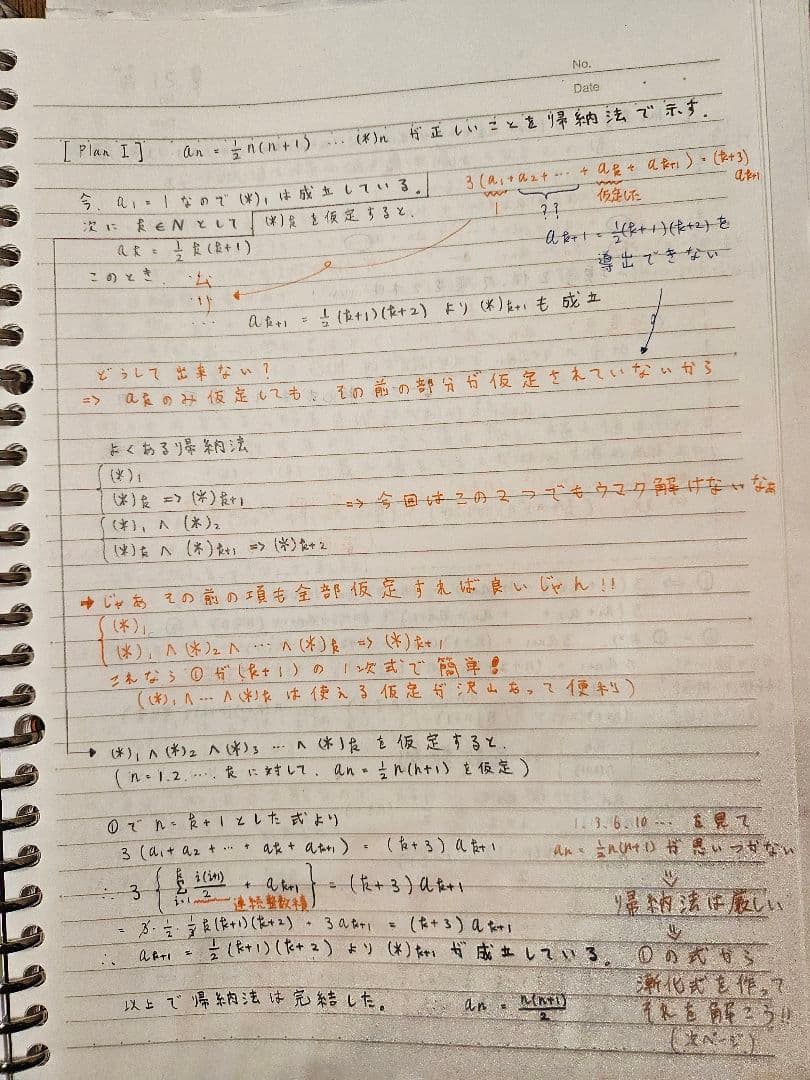 No.
Date
[Plan I] an = 1/2 n(n+1) … (*)n が正しいことを帰納法で示す.
今, a1 = 1 なので (*)1 は成立している。
3(a1+a2+…+ak+ak+1) = (k+3)ak+1
1 ?? 仮定した
次に k∈N として (*)k を仮定すると,
ak = 1/2 k(k+1)
ak+1 = 1/2(k+1)(k+2) を
導出できない
このとき,
ak+1 = 1/2 (k+1)(k+2) より (*)k+1 も成立
どうして出来ない?
=> ak のみ仮定しても, その前の部分が仮定されていないから
よくある帰納法
(*)1
(*)k => (*)k+1
=> 今回はこの2つでもウマク解けないなぁ
(*)1 ∧ (*)2
(*)k ∧ (*)k+1 => (*)k+2
→ じゃあその前の項も全部仮定すれば良いじゃん!!
(*)1
(*)1 ∧ (*)2 ∧ … ∧ (*)k => (*)k+1
これなら ① が (k+1) の 1次式で簡単!
((*)1 ∧ … ∧ (*)k は使える仮定が沢山あって便利)
(*)1 ∧ (*)2 ∧ (*)3 … ∧ (*)k を仮定すると,
(n=1.2.…,k に対して, an = 1/2 n(n+1) を仮定)
① で n=k+1 とした式より
3(a1+a2+…+ak+ak+1) = (k+3)ak+1
∴ 3{Σ[i=1→k] i(i+1)/2 + ak+1} = (k+3)ak+1
連続整数積
= 3・1/2・1/3 k(k+1)(k+2) + 3ak+1 = (k+3)ak+1
∴ ak+1 = 1/2 (k+1)(k+2) より (*)k+1 が成立している。
以上で帰納法は完結した。 an = n(n+1)/2
1.3.6.10… を見て
an = 1/2 n(n+1) が思いつかない
⇓
帰納法は厳しい
⇓
① の式から
漸化式を作って
それを解こう!!
(次ページ)